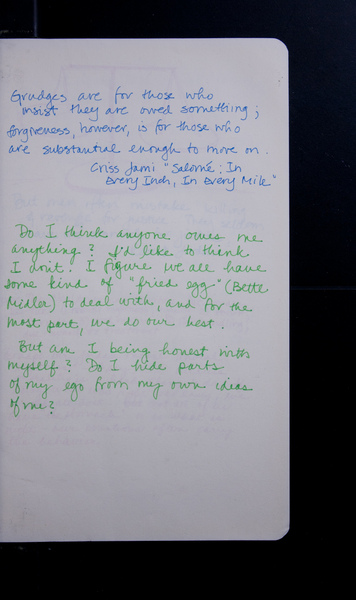 Grudges are for those who
insist they are owed something;
forgiveness, however, is for those who
are substantial enough to move on.
Criss Jami "Salomé: In
Every Inch, In Every Mile"
Do I think anyone owes me
anything? I'd like to think
I don't. I figure we all have
some kind of "fried egg" (Bette
Midler) to deal with, and for the
most part, we do our best.
But am I being honest with
myself? Do I hide parts
of my ego from my own ideas
of me?